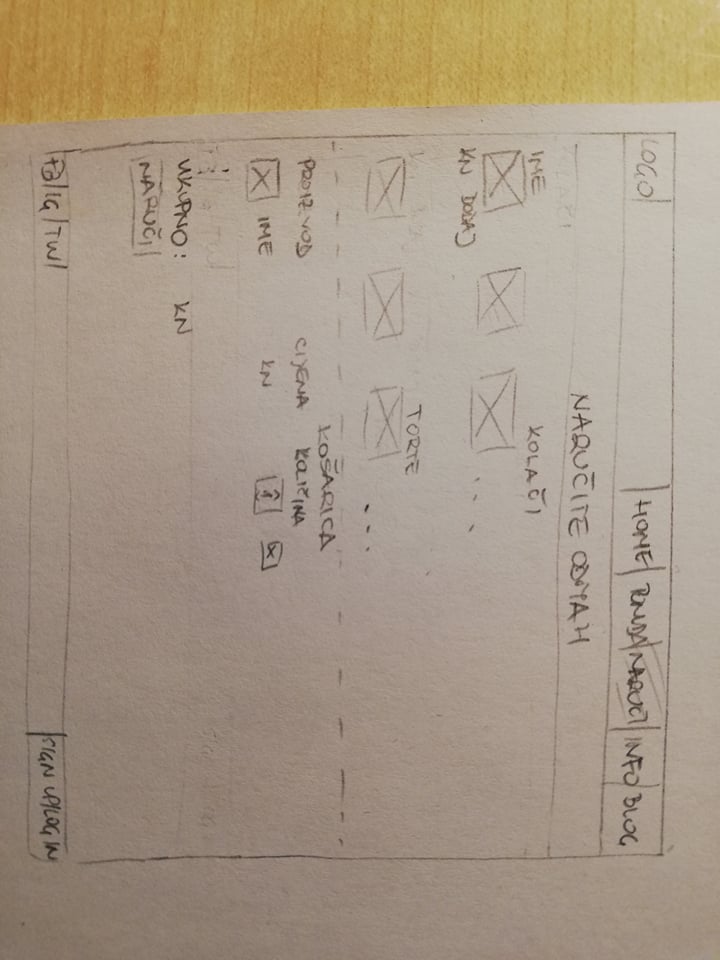 LOGO HOME PONUDA NARUČI INFO BLOG
NARUČITE ODMAH
IME KOLAČI
...
KN DODAJ
TORTE
...
KOŠARICA
PROIZVOD CIJENA KOLIČINA
IME KN 1
UKUPNO: KN
NARUČI
FB IG TW SIGN UP/LOG IN